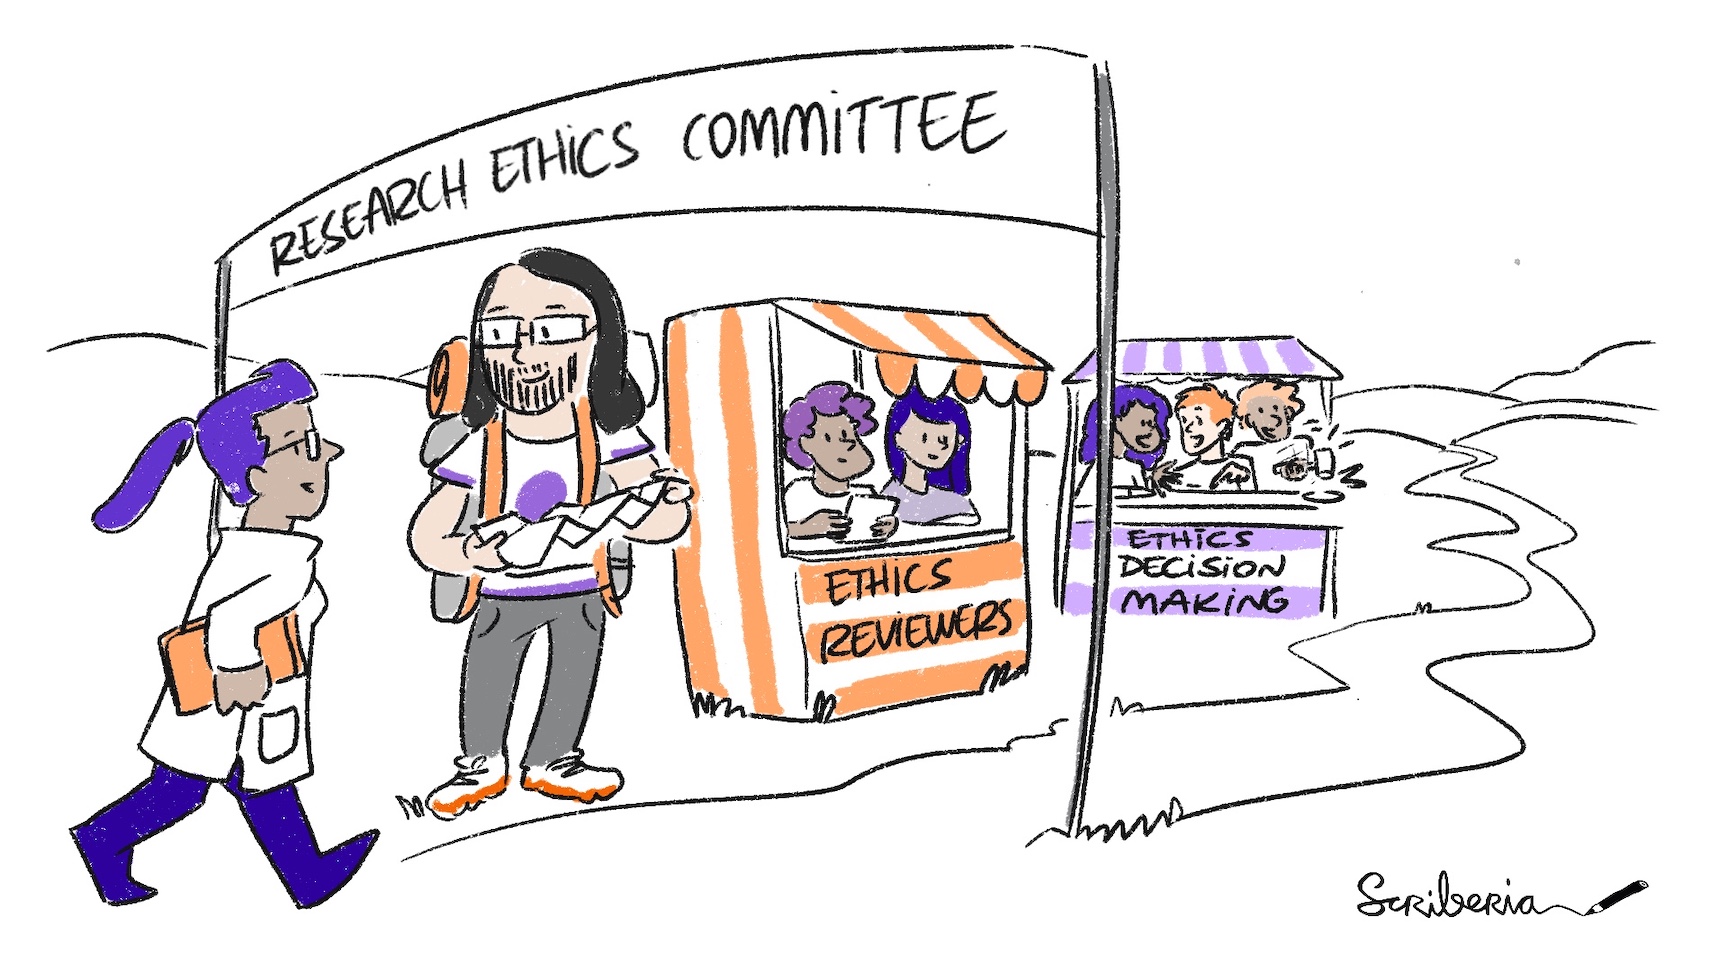 RESEARCH ETHICS COMMITTEE
ETHICS
REVIEWERS
ETHICS
DECISION
MAKING
Scriberia